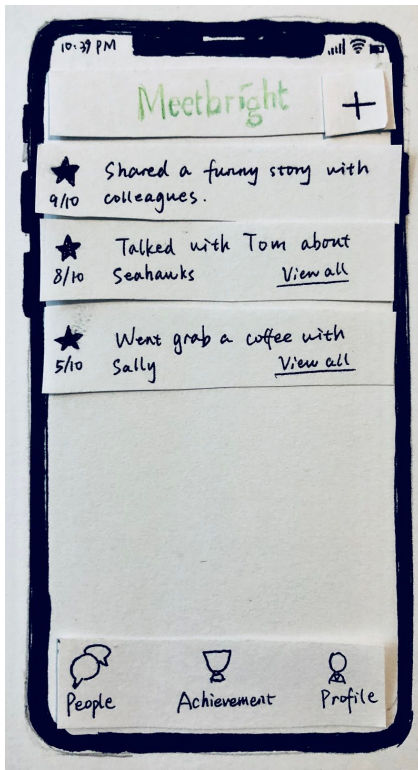 10:39 PM
Meetbright
+
Shared a funny story with
9/10 colleagues.
Talked with Tom about
8/10 Seahawks View all
Went grab a coffee with
5/10 Sally View all
People Achievement Profile